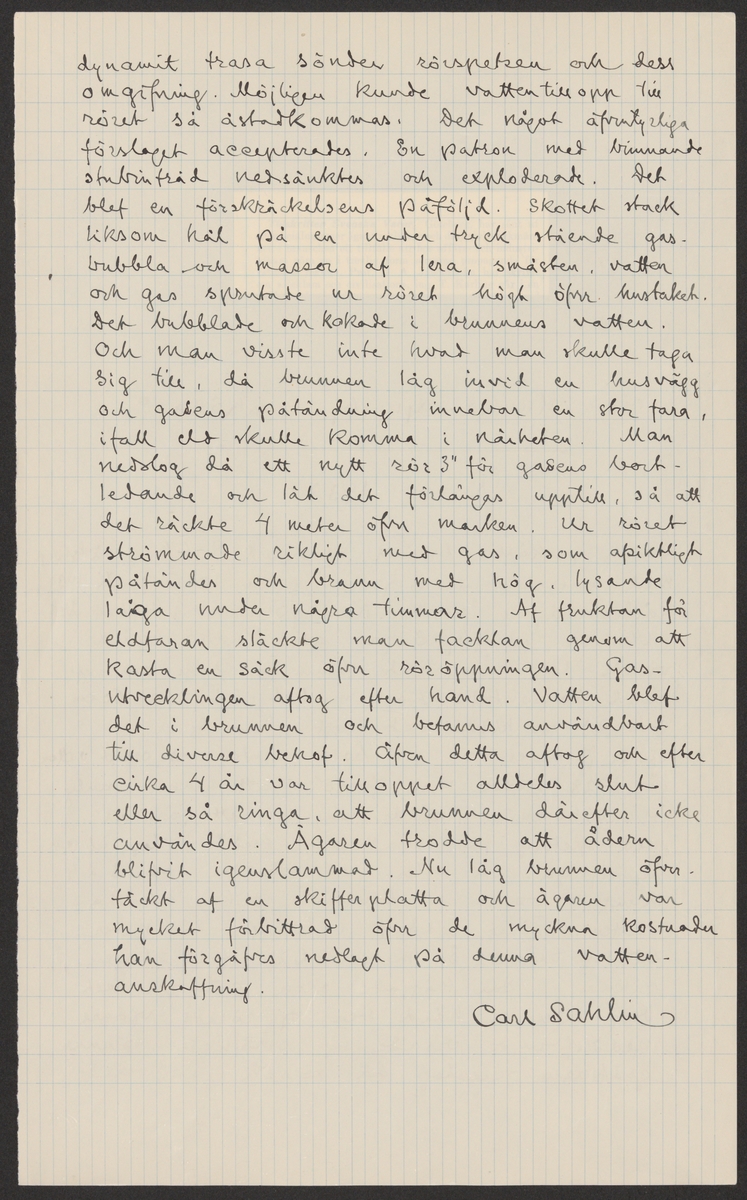 dynamit trasa sönder rörspetsen och dess
omgifning. Möjligen kunde vattentillopp till
röret så åstadkommas. Det något äfventyrliga
förslaget accepterades. En patron med brinnande
stubintråd nedsänktes och exploderade. Det
blef en förskräckelsens påföljd. Skottet stack
liksom hål på en under tryck stående gas-
bubbla och massor af lera, småsten, vatten
och gas sprutade ur röret högt öfver hustaket.
Det bubblade och kokade i brunnens vatten.
Och man visste inte hvad man skulle taga
sig till, då brunnen låg invid en husvägg
och gasens påtändning innebar en stor fara,
ifall eld skulle komma i närheten. Man
nedslog då ett nytt rör 3" för gasens bort-
ledande och lät det förlängas upptill, så att
det räckte 4 meter öfver marken. Ur röret
strömmade rikligt med gas, som afsiktligt
påtändes och brann med hög, lysande
låga under några timmar. Af fruktan för
eldfaran släckte man facklan genom att
kasta en säck öfver röröppningen. Gas-
utvecklingen aftog efter hand. Vatten blef
det i brunnen och befanns användbart
till diverse behof. Äfven detta aftog och efter
cirka 4 år var tilloppet alldeles slut
eller så ringa, att brunnen därefter icke
användes. Ägaren trodde att ådern
blifvit igenslammad. Nu låg brunnen öfver-
täckt af en skifferplatta och ägaren var
mycket förbittrad öfver de myckna kostnader
han förgäfves nedlagt på denna vatten-
anskaffning.
Carl Sahlin